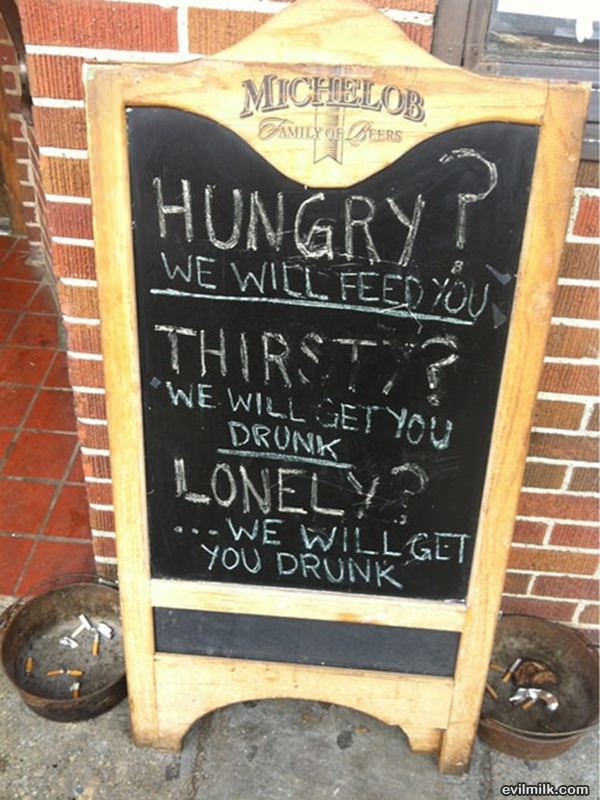 MICHELOB
FAMILY OF BEERS
HUNGRY?
WE WILL FEED YOU
THIRSTY?
WE WILL GET YOU
DRUNK
LONELY?
...WE WILL GET
YOU DRUNK
evilmilk.com